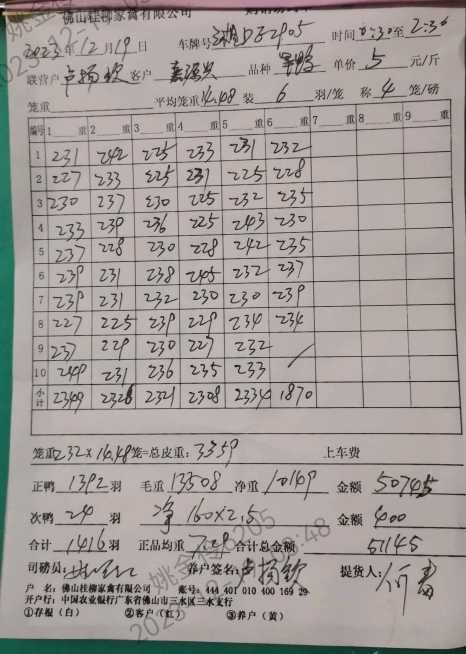 佛山桂柳家禽有限公司
2023年12月19日 车牌号 时间 至 2:30
联营户 卢扬钦 客户 品种 单价 5 元/斤
笼重 平均笼重 14.48 装 6 羽/笼 称 4 笼/磅
编号 1 重 2 重 3 重 4 重 5 重 6 重 7 重 8 重 9 重
1 231 242 225 233 231 232
2 227 233 225 231 225 228
3 230 237 230 225 232 235
4 233 239 236 225 243 230
5 237 228 230 228 242 235
6 239 231 238 245 232 237
7 239 231 232 230 230 239
8 227 225 239 229 234 234
9 237 229 230 227 232
10 249 231 236 235 233
小计 2349 2326 2321 2308 2334 1870
笼重232×14.48笼=总皮重: 3359 上车费
正鸭 1392 羽 毛重 13508 净重 10149 金额 50745
次鸭 24 羽 净 160×2.5 金额 400
合计 1416 羽 正品均重 7.29 合计总金额 51145
司磅员: 养户签名: 卢扬钦 提货人:
户 名: 佛山桂柳家禽有限公司 账号: 444 401 010 400 169 29
开户行: 中国农业银行广东省佛山市三水区三水支行
①存根(白) ②客户(红) ③养户(黄)